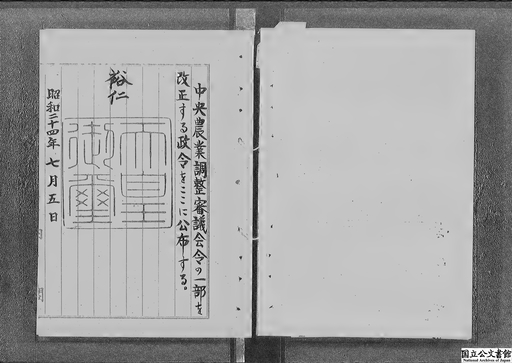 中央農業調整審議会令の一部を
改正する政令をここに公布する。
裕仁
天皇
御璽
昭和二十四年七月五日
国立公文書館
National Archives of Japan